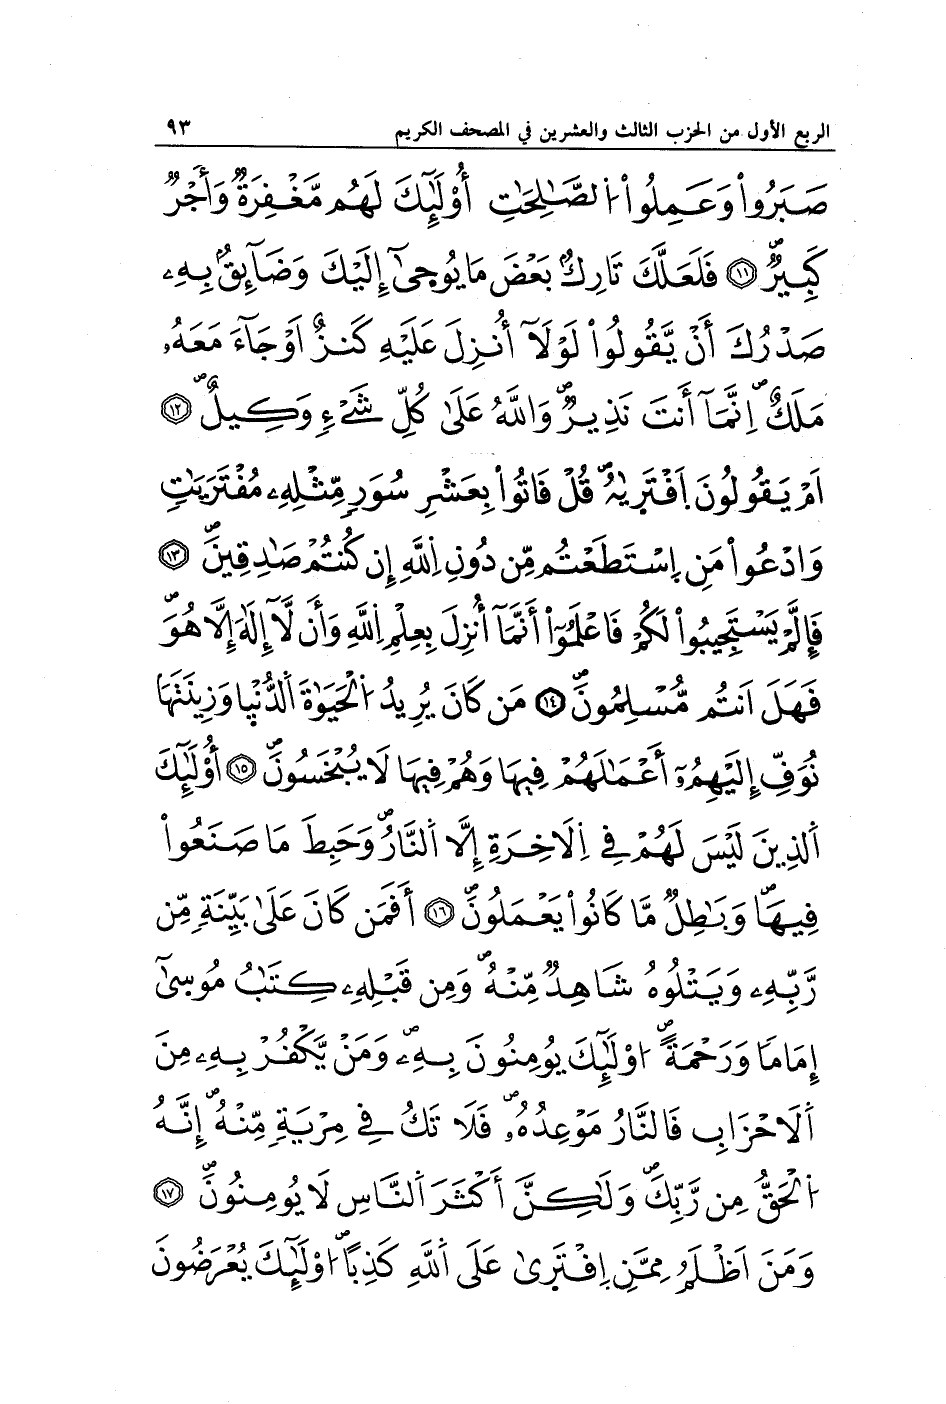 الربع الأول من الحزب الثالث والعشرين في المصحف الكريم ٩٣
صَبَرُواْ وَعَمِلُواْ اُ۬لصَّٰلِحَٰتِ أُوْلَٰٓئِكَ لَهُم مَّغْفِرَةٞ وَأَجْرٞ
كَبِيرٞۖ ١١ فَلَعَلَّكَ تَارِكُۢ بَعْضَ مَا يُوح۪يٰٓ إِلَيْكَ وَضَآئِقُۢ بِهِۦ
صَدْرُكَ أَنْ يَّقُولُواْ لَوْلَآ أُنزِلَ عَلَيْهِ كَنزٌ اَوْ جَآءَ مَعَهُۥ
مَلَكٌۖ اِنَّمَآ أَنتَ نَذِيرٞۖ وَاللَّهُ عَلَىٰ كُلِّ شَےْءٖ وَكِيلٌۖ ١٢
اَمْ يَقُولُونَ اَ۪فْتَر۪يٰهُۖ قُلْ فَاتُواْ بِعَشْرِ سُوَرٖ مِّثْلِهِۦ مُفْتَرَيَٰتٖ
وَادْعُواْ مَنِ اِ۪سْتَطَعْتُم مِّن دُونِ اِ۬للَّهِ إِن كُنتُمْ صَٰدِقِينَۖ ١٣
فَإِلَّمْ يَسْتَجِيبُواْ لَكُمْ فَاعْلَمُوٓاْ أَنَّمَآ أُنزِلَ بِعِلْمِ اِ۬للَّهِ وَأَن لَّآ إِلَٰهَ إِلَّا هُوَۖ
فَهَلَ اَنتُم مُّسْلِمُونَۖ ١٤ مَن كَانَ يُرِيدُ اُ۬لْحَيَوٰةَ اَ۬لدُّنْي۪ا وَزِينَتَهَا
نُوَفِّ إِلَيْهِمُۥٓ أَعْمَٰلَهُمْ فِيهَا وَهُمْ فِيهَا لَا يُبْخَسُونَۖ ١٥ أُوْلَٰٓئِكَ
اَ۬لذِينَ لَيْسَ لَهُمْ فِي اِ۬لَاخِرَةِ إِلَّا اَ۬لنَّارُۖ وَحَبِطَ مَا صَنَعُواْ
فِيهَاۖ وَبَٰطِلٞ مَّا كَانُواْ يَعْمَلُونَۖ ١٦ أَفَمَن كَانَ عَلَىٰ بَيِّنَةٖ مِّن
رَّبِّهِۦ وَيَتْلُوهُ شَاهِدٞ مِّنْهُۖ وَمِن قَبْلِهِۦ كِتَٰبُ مُوس۪يٰٓ
إِمَامٗا وَرَحْمَةًۖ اُوْلَٰٓئِكَ يُومِنُونَ بِهِۦۖ وَمَنْ يَّكْفُرْ بِهِۦ مِنَ
اَ۬لَاحْزَابِ فَالنَّارُ مَوْعِدُهُۥۖ فَلَا تَكُ فِي مِرْيَةٖ مِّنْهُۖ إِنَّهُ
اُ۬لْحَقُّ مِن رَّبِّكَۖ وَلَٰكِنَّ أَكْثَرَ اَ۬لنَّاسِ لَا يُومِنُونَۖ ١٧
وَمَنَ اَظْلَمُ مِمَّنِ اِ۪فْتَر۪يٰ عَلَى اَ۬للَّهِ كَذِباًۖ اُوْلَٰٓئِكَ يُعْرَضُونَ